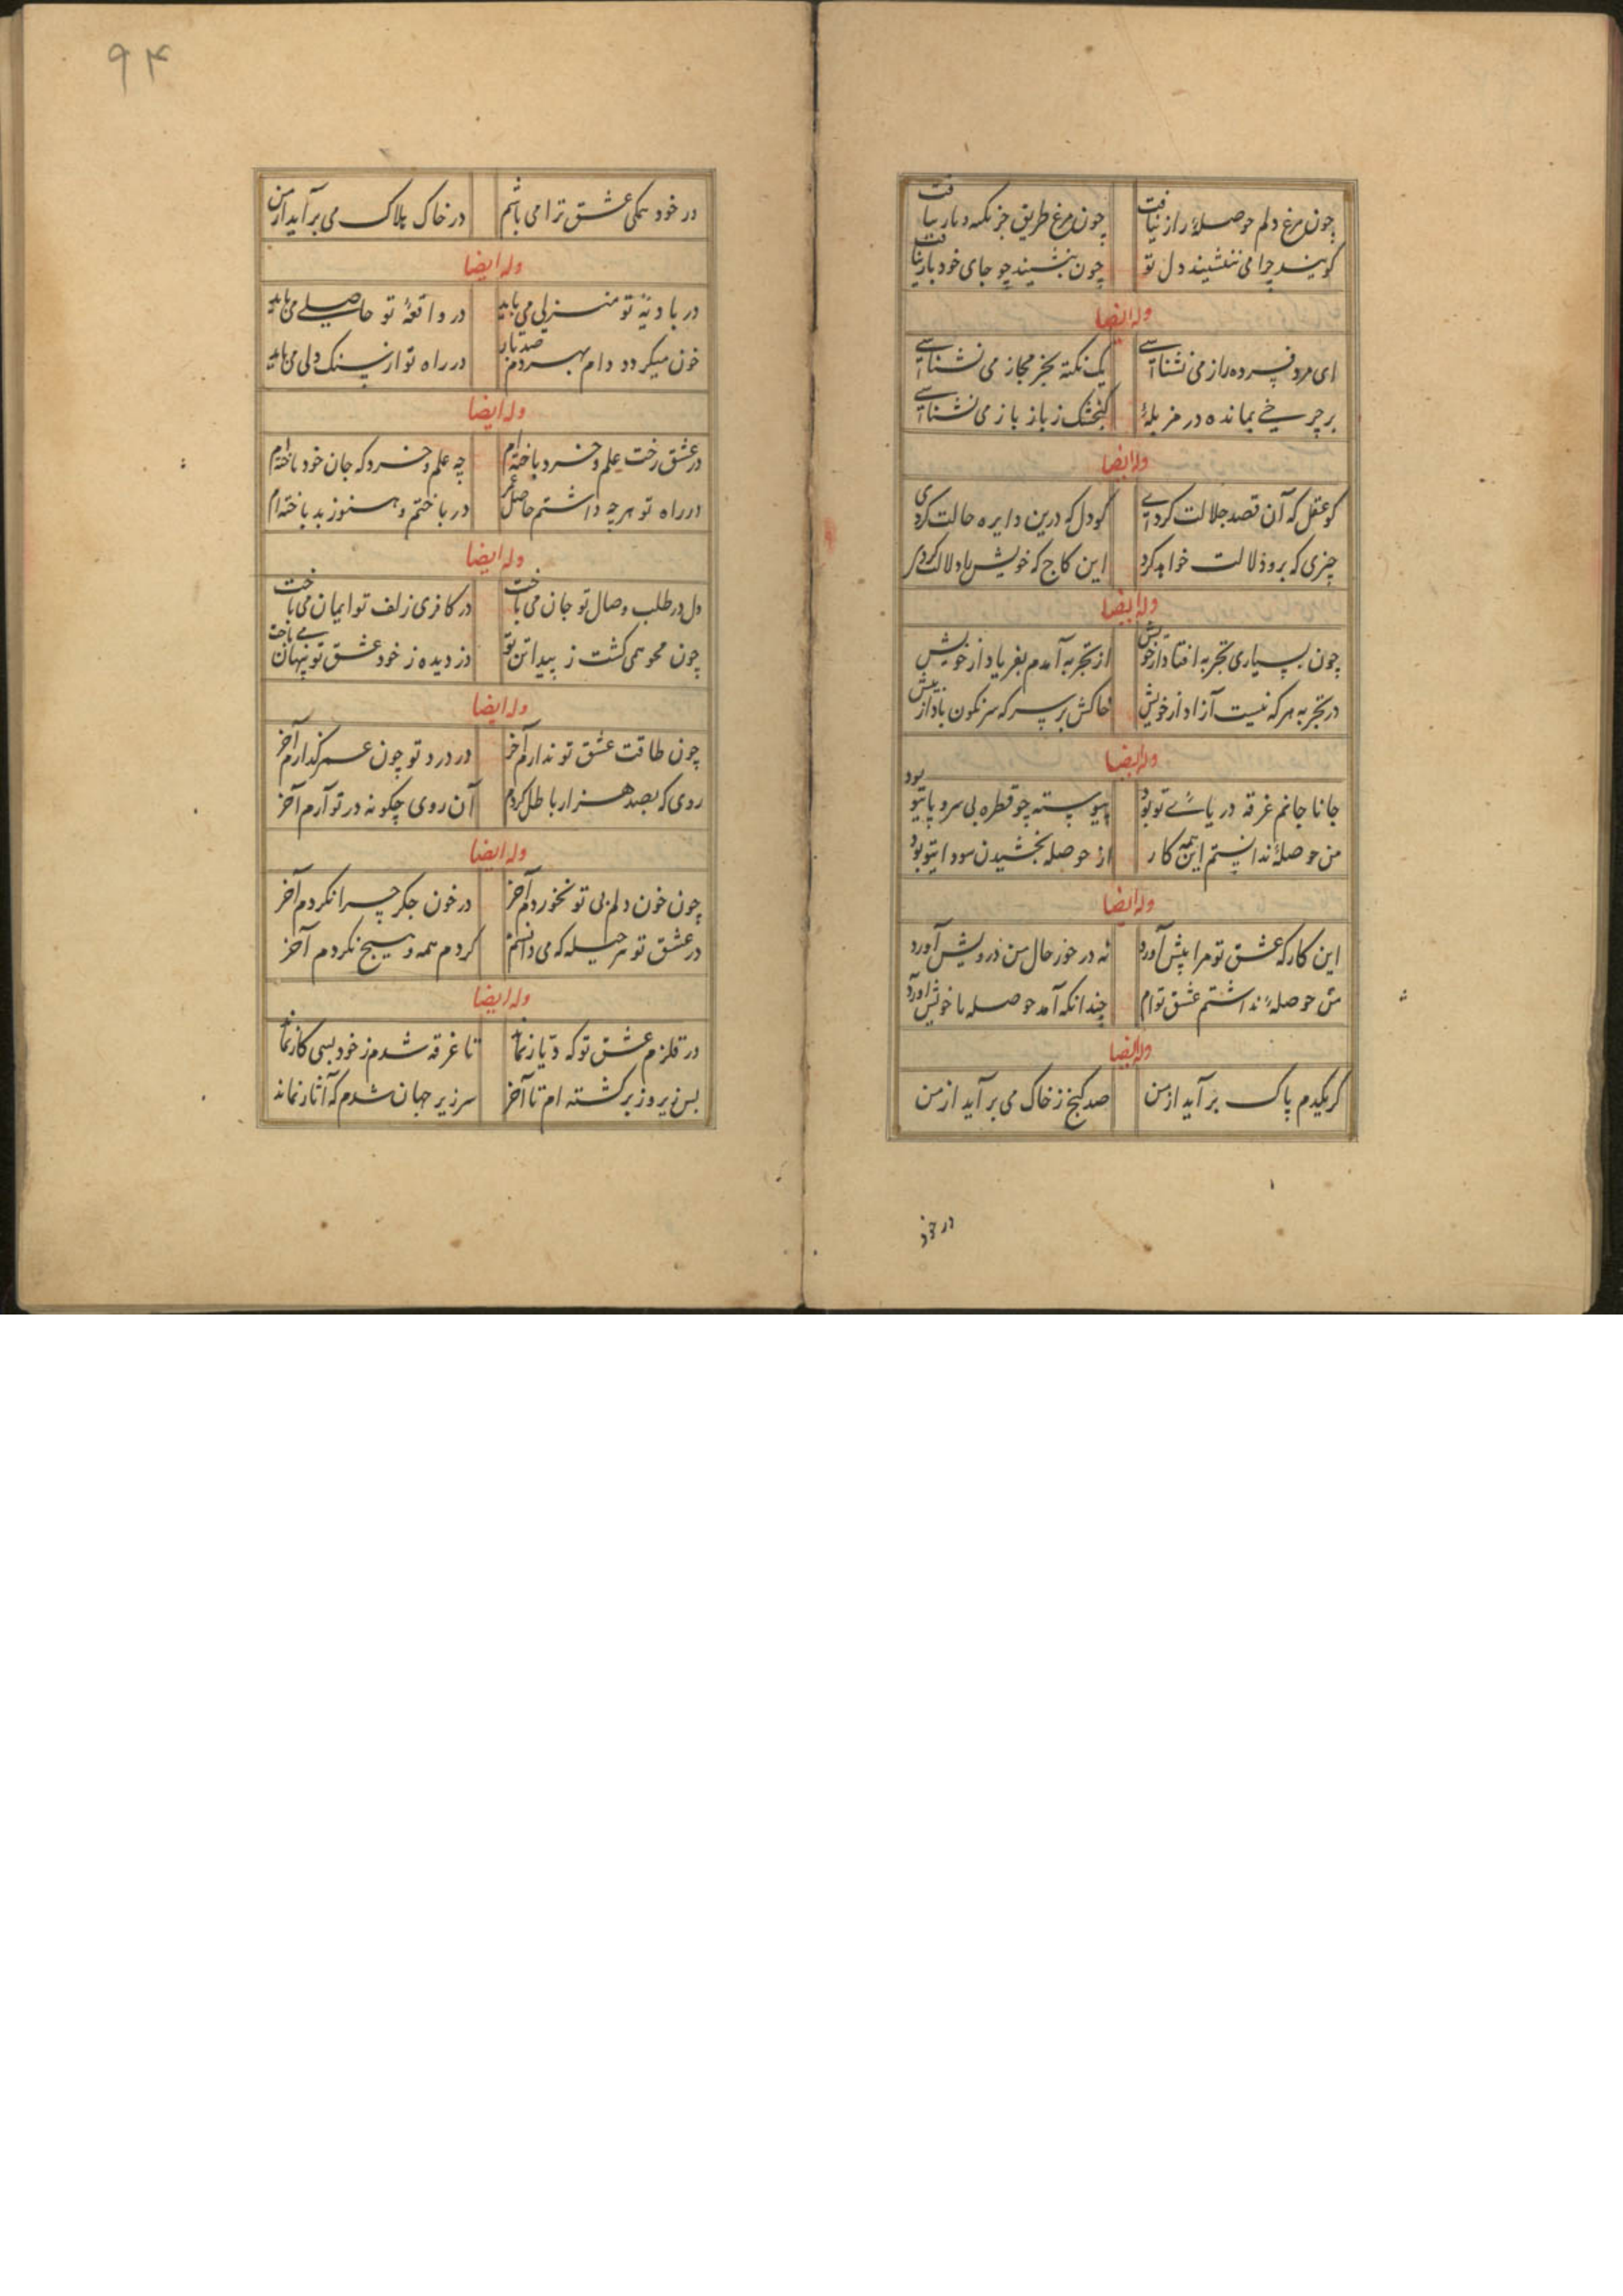 چون مرغ دلم حوصلهٔ راز نیافت چون مرغ طریق جز تکه و بار نیافت
گویند چرا می ننشیند دل تو چون بنشیند چو جای خود باز نیافت
وله ایضا
ای مرد فسرده راز می نشناسے یک نکته بجز مجاز می نشناسے
بر چرخے بمانده در مزبلهٔ گنجشک ز باز باز می نشناسے
وله ایضا
کو عقل که آن قصد جلالت کردے کو دل که درین دایره حالت کردی
چیزی که برو دلالت خواهد کرد این کاج که خویش را دلالت کردی
وله ایضا
چون بسیاری تجربه افتاد از خویش از تجربه آمدم بفریاد از خویش
در تجربه هر که نیست آزاد از خویش خاکش بر سر که سرنگون باد از پیش
وله ایضا
جانا جانم غرقه دریاے تو بود پیوسته چو قطره بی سر و پا تو بود
من حوصلهٔ ندانستم این همه کار از حوصله بخشیدن سودا تو بود
وله ایضا
این کار که عشق تو مرا پیش آورد نه در خور حال من درویش آورد
من حوصلهٔ نداشتم عشق توام چندانکه آمد حوصله با خویش آورد
وله ایضا
گر یکدم پاک بر آید از من صد گنج ز خاک می بر آید از من
در خود
۹۴
در خود همگی عشق ترا می باشم در خاک هلاک می بر آید از من
وله ایضا
در بادیهٔ تو منزلی می باید در واقعهٔ تو حاصلے می باید
خون میگردد دام بهر دم صد بار در راه تو از سنگ دلی می باید
وله ایضا
در عشق رخت علم و خرد باخته ام چه علم و خرد که جان خود باخته ام
در راه تو هر چه داشتم حاصل عمر در باختم و هنوز بد باخته ام
وله ایضا
دل در طلب وصال تو جان می باخت در کافری زلف تو ایمان می باخت
چون محو همی گشت ز پیدائی تو دزدیده ز خود عشق تو پنهان مے باخت
وله ایضا
چون طاقت عشق تو ندارم آخر در درد تو چون عمر گذارم آخر
روی که بصد هزار باطل کردم آن روی چگونه در تو آرم آخر
وله ایضا
چون خون دلم بی تو نخوردم آخر در خون جگر چرا نکردم آخر
در عشق تو هر حیله که می دانستم کردم همه و هیچ نکردم آخر
وله ایضا
در قلزم عشق تو که دیار نماند تا غرقه شدم ز خود بسی کار نماند
بس زیر و زبر گشته ام تا آخر سر زیر جهان شدم که آثار نماند